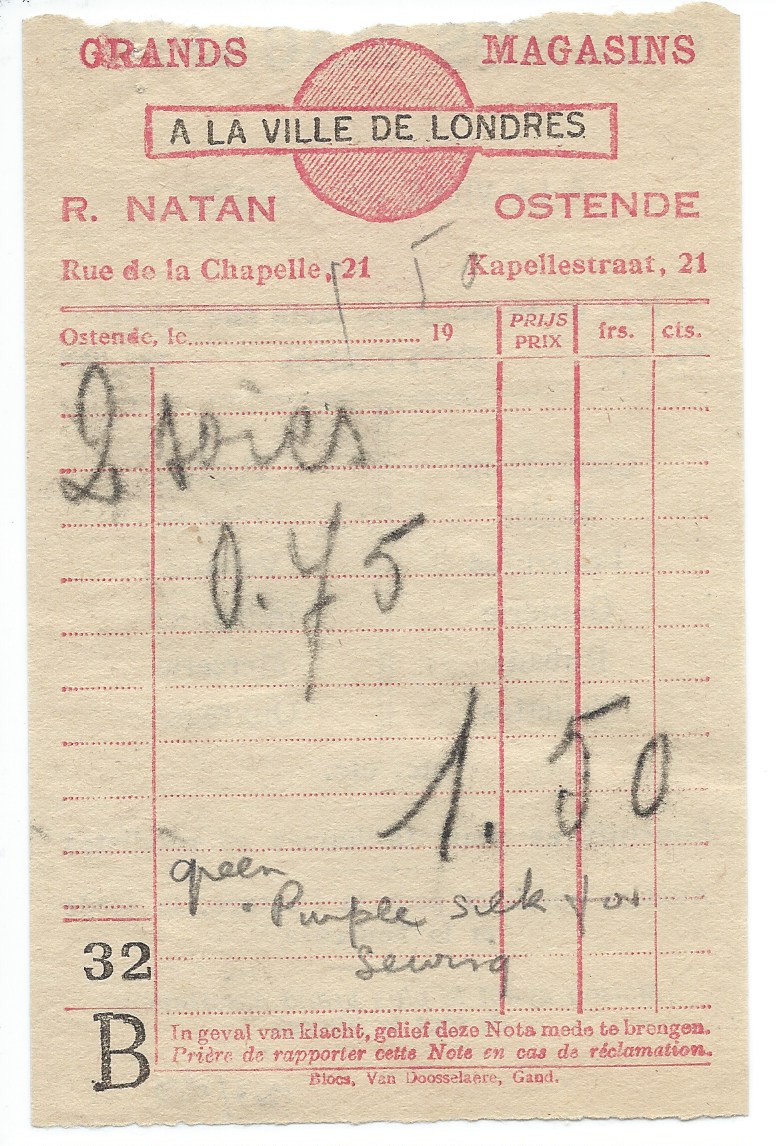 GRANDS MAGASINS
A LA VILLE DE LONDRES
R. NATAN OSTENDE
1 50
Rue de la Chapelle, 21 Kapellestraat, 21
Ostende, le 19 PRIJS PRIX frs. cts.
2 soies
0.75
1.50
green
. Purple silk for
sewing
32
B
In geval van klacht, gelief deze Nota mede te brengen.
Prière de rapporter cette Note en cas de réclamation.
Blocs, Van Doosselaere, Gand.